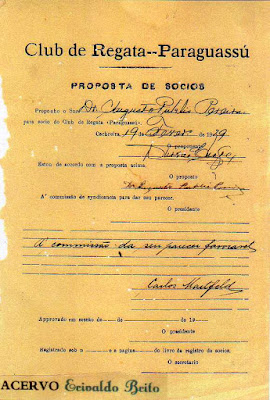 Club de Regata--Paraguassú
PROPOSTA DE SOCIOS
Proponho o Snr. Dr. Augusto Publio
para socio do Club de Regata «Paraguassú»
Cachoeira, 19 de de 19
O proponente
Estou de accordo com a proposta acima.
O proposto
A' commissão de syndicancia para dar seu parecer.
O presidente
A commissão da seu parecer favoravel
Carlos
O presidente
Approvado em sessão de de de 19
O presidente
Registrado sob n e a pagina do livro de registro de socios.
O secretario
ACERVO Erivaldo Brito